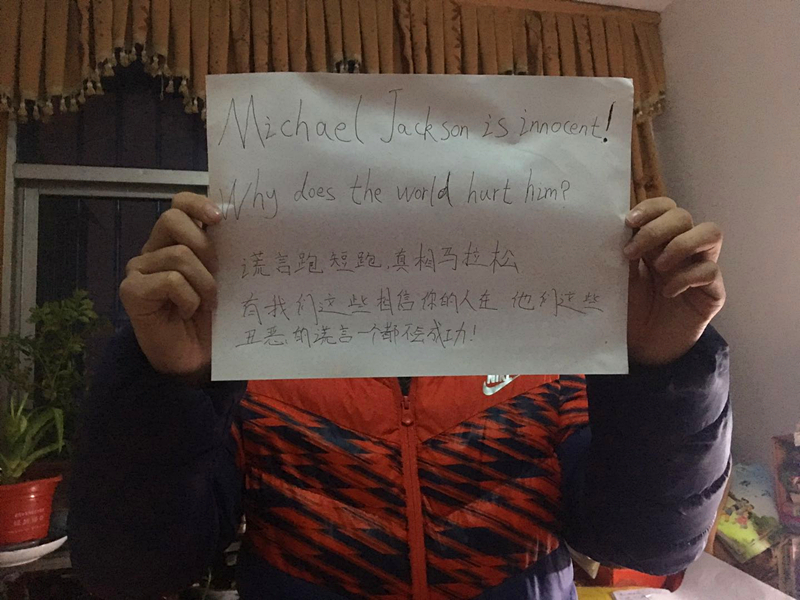 Michael Jackson is innocent!
Why does the world hurt him?
谎言跑短跑,真相马拉松
有我们这些相信你的人在 他们这些
丑恶的谎言一个都不会成功!